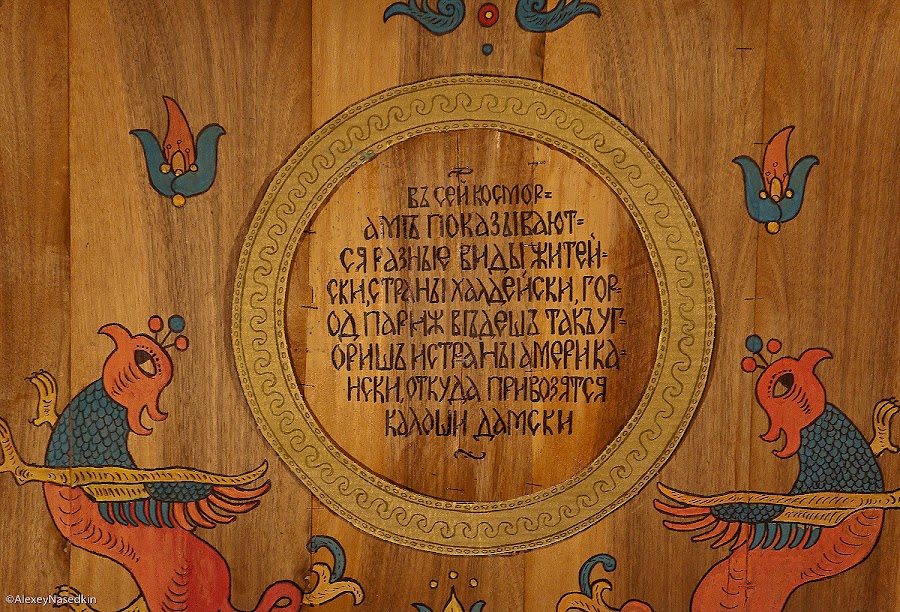 въ сей космор=
амъ показывают=
ся разные виды житей=
ски, страны халдейски, гор=
од париж въѣдешъ такъ уг=
оришъ и страны америка=
нски, откуда привозятся
калоши дамски
©AlexeyNasedkin